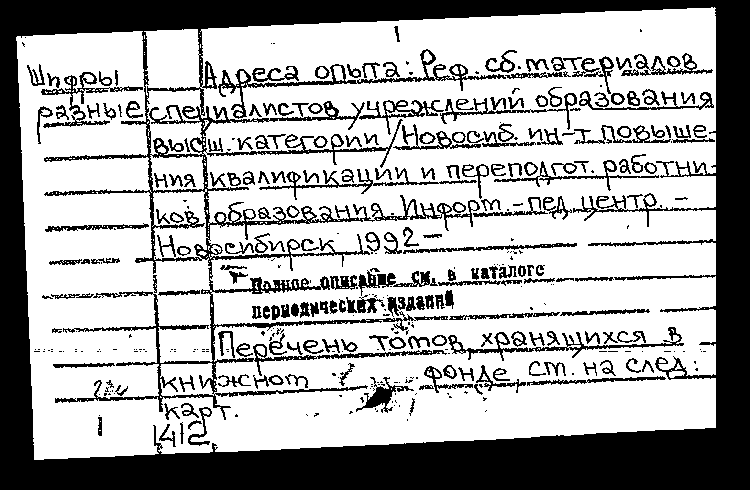 1
Шифры Адреса опыта: Реф. сб. материалов
разные специалистов учреждений образования
высш. категории / Новосиб. ин-т повыше-
ния квалификации и переподгот. работни-
ков образования. Информ.-пед. центр. -
Новосибирск, 1992 -
Полное описание см. в каталоге
периодических изданий
Перечень томов, хранящихся в
книжном фонде, см. на след.
карт.
1 412